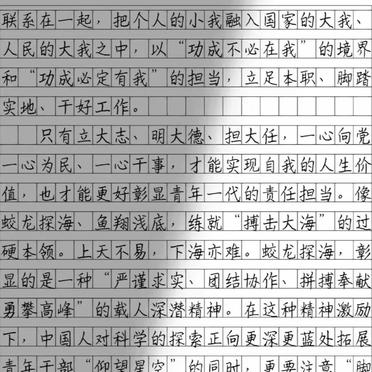 联系在一起，把个人的小我融入国家的大我、
人民的大我之中，以“功成不必在我”的境界
和“功成必定有我”的担当，立足本职、脚踏
实地、干好工作。
只有立大志、明大德、担大任，一心向党
一心为民、一心干事，才能实现自我的人生价
值，也才能更好彰显青年一代的责任担当。像
蛟龙探海、鱼翔浅底，练就“搏击大海”的过
硬本领。上天不易，下海亦难。蛟龙探海，彰
显的是一种“严谨求实、团结协作、拼搏奉献
勇攀高峰”的载人深潜精神。在这种精神激励
下，中国人对科学的探索正向更深更蓝处拓展
青年干部“仰望星空”的同时，更要注意“脚